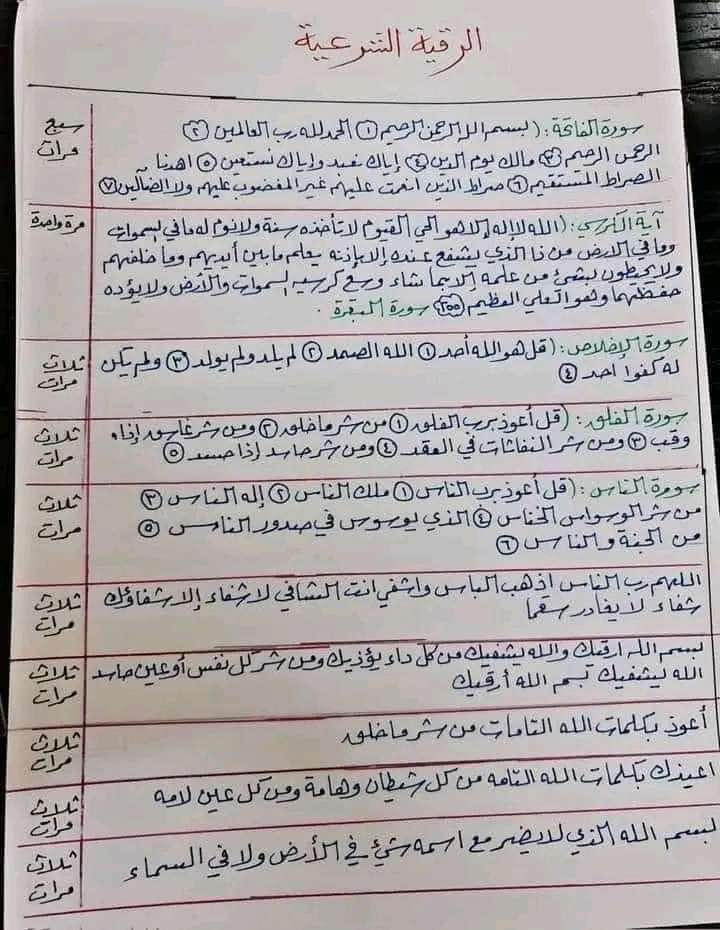 الرقية الشرعية
سورة الفاتحة: (بسم الله الرحمن الرحيم ١ الحمد لله رب العالمين ٢
سبع مرات
الرحمن الرحيم ٣ مالك يوم الدين ٤ إياك نعبد وإياك نستعين ٥ اهدنا
الصراط المستقيم ٦ صراط الذين انعمت عليهم غير المغضوب عليهم ولا الضآلين ٧
آية الكرسي: (الله لا إله إلا هو الحي القيوم لا تأخذه سنة ولا نوم له ما في السموات
مرة واحدة
وما في الارض من ذا الذي يشفع عنده إلا بإذنه يعلم ما بين أيديهم وما خلفهم
ولا يحيطون بشيء من علمه إلا بما شاء وسع كرسيه السموات والأرض ولا يؤده
حفظهما وهو العلي العظيم ٢٥٥ سورة البقرة.
سورة الإخلاص: (قل هو الله أحد ١ الله الصمد ٢ لم يلد ولم يولد ٣ ولم يكن
ثلاث مرات
له كفوا احد ٤
سورة الفلق: (قل أعوذ برب الفلق ١ من شر ما خلق ٢ ومن شر غاسق إذا
ثلاث مرات
وقب ٣ ومن شر النفاثات في العقد ٤ ومن شر حاسد إذا حسد ٥
سورة الناس: (قل أعوذ برب الناس ١ ملك الناس ٢ إله الناس ٣
ثلاث مرات
من شر الوسواس الخناس ٤ الذي يوسوس في صدور الناس ٥
من الجنة والناس ٦
اللهم رب الناس اذهب الباس واشفي انت الشافي لا شفاء إلا شفاؤك
ثلاث مرات
شفاء لا يغادر سقما
بسم الله ارقيك والله يشفيك من كل داء يؤذيك ومن شر كل نفس أو عين حاسد
ثلاث مرات
الله يشفيك بسم الله أرقيك
أعوذ بكلمات الله التامات من شر ما خلق
ثلاث مرات
اعيذك بكلمات الله التامه من كل شيطان وهامة ومن كل عين لامه
ثلاث مرات
بسم الله الذي لا يضر مع اسمه شيء في الأرض ولا في السماء
ثلاث مرات